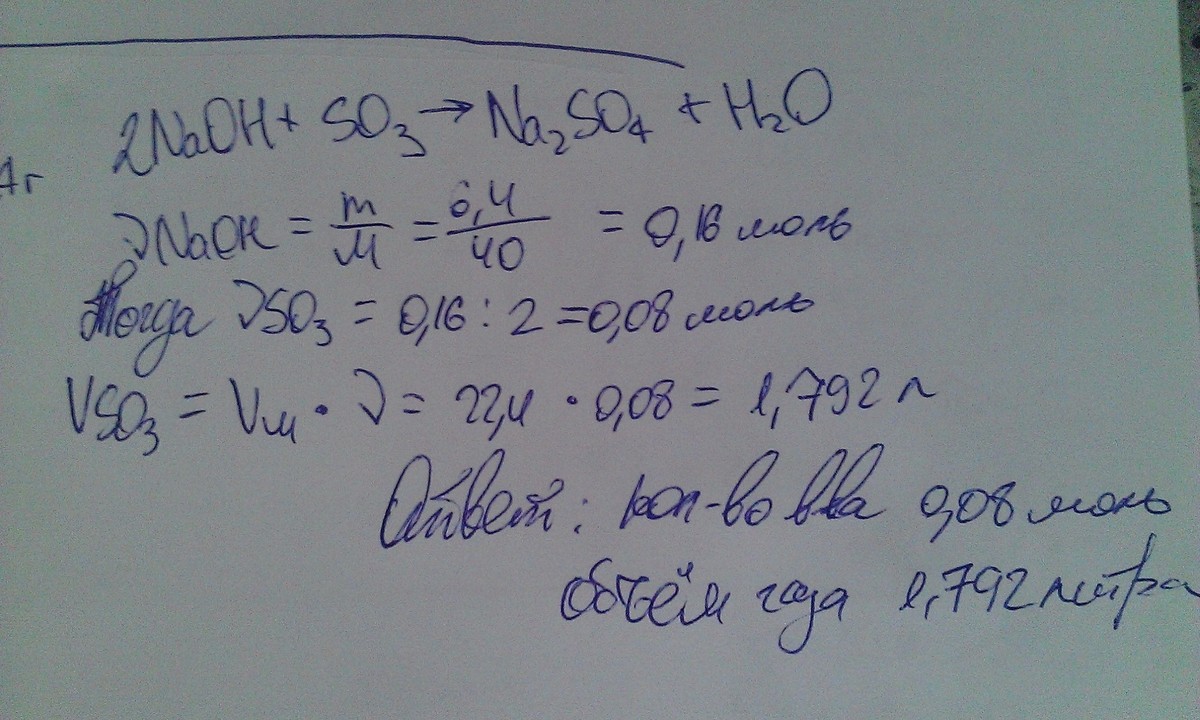 2NaOH + SO₃ → Na₂SO₄ + H₂O
4г
νNaOH = m/M = 6,4/40 = 0,16 моль
Тогда νSO₃ = 0,16 : 2 = 0,08 моль
VSO₃ = Vм · ν = 22,4 · 0,08 = 1,792 л
Ответ: кол-во вва 0,08 моль
объём газа 1,792 литра